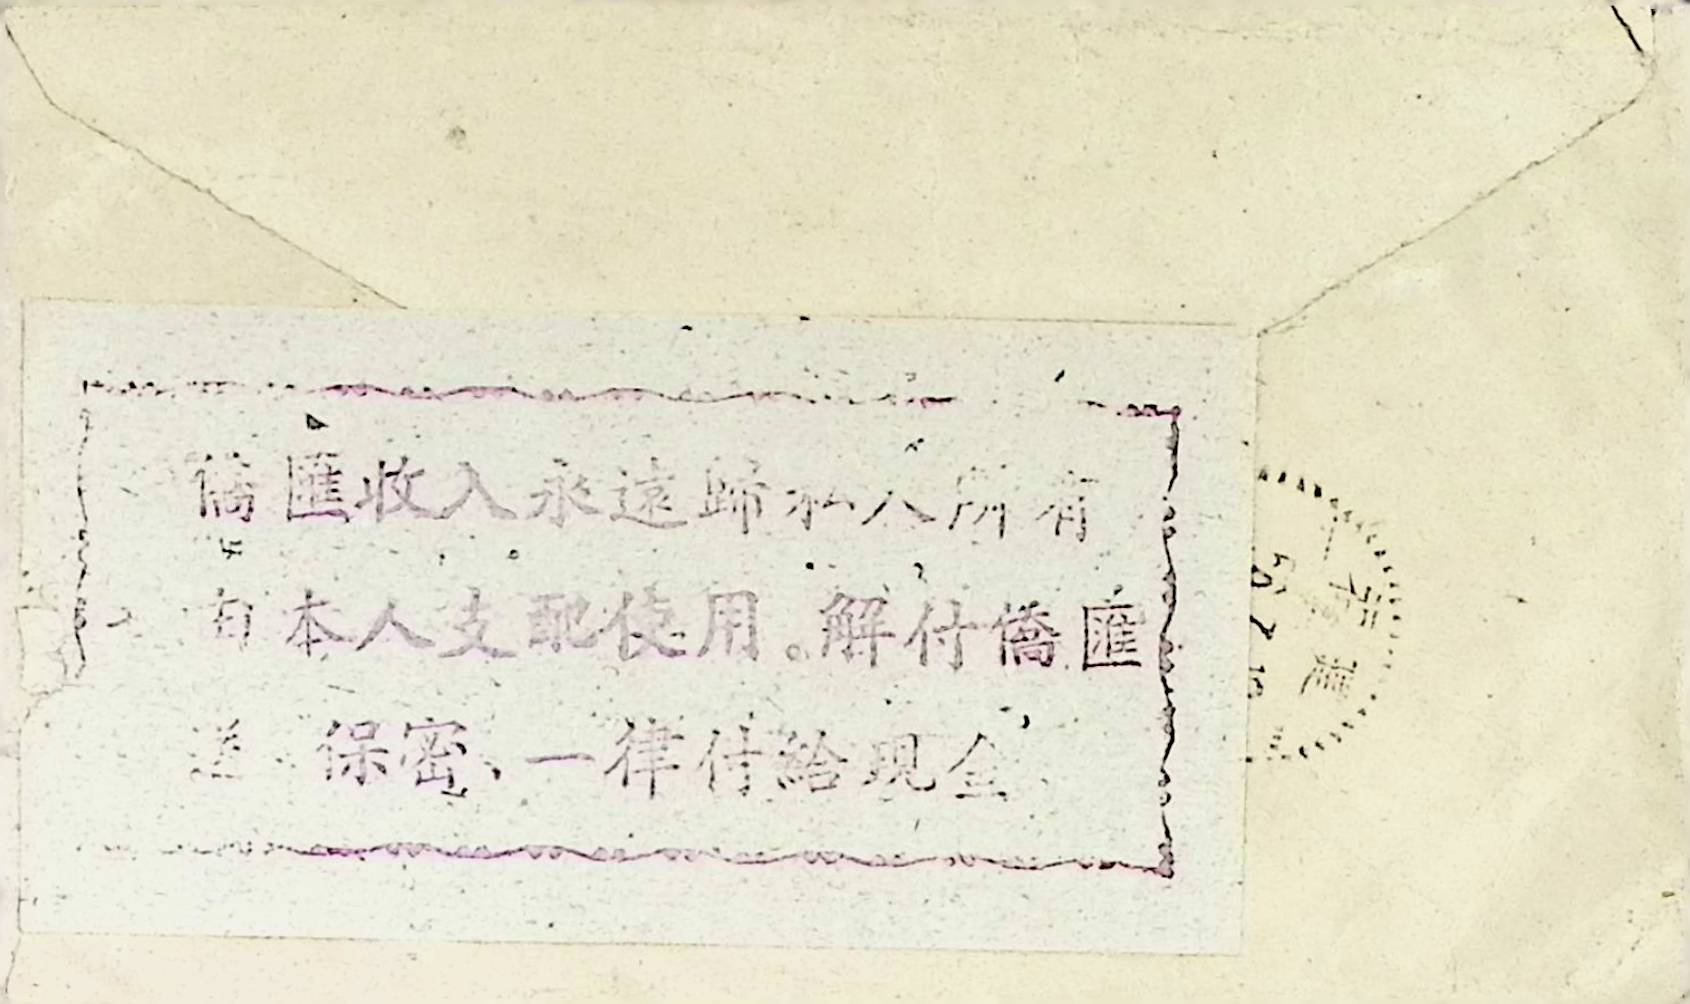 僑匯收入永遠歸私人所有
由本人支配使用。解付僑匯
保密、一律付給現金
福建